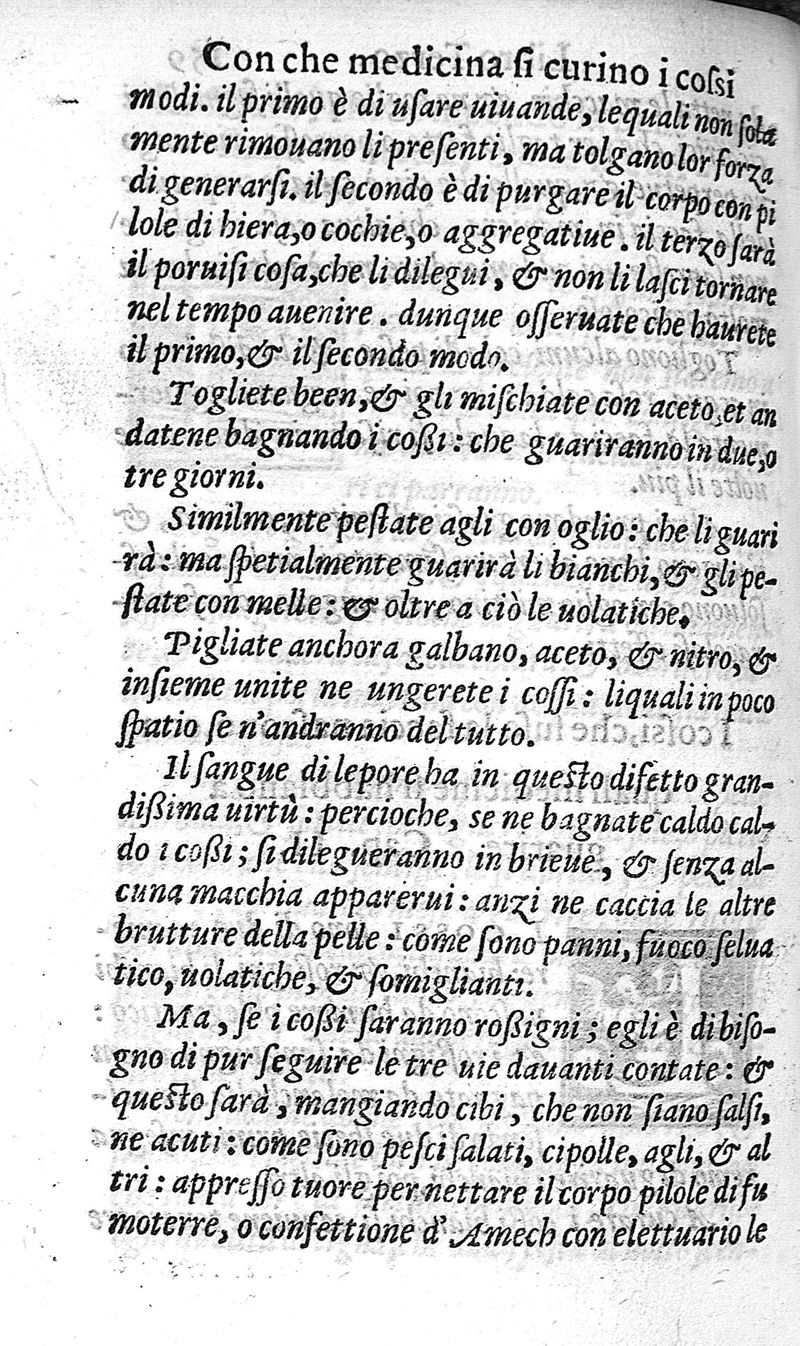 Con che medicina ſi curino i coſsi
modi. il primo è di uſare uiuande, lequali non ſola
mente rimouano li preſenti, ma tolgano lor forza
di generarſi. il ſecondo è di purgare il corpo con pi
lole di hiera, o cochie, o aggregatiue. il terzo ſarà
il poruiſi coſa, che li dilegui, & non li laſci tornare
nel tempo auenire. dunque oſſeruate che haurete
il primo, & il ſecondo modo.
Togliete been, & gli miſchiate con aceto, et an
datene bagnando i coßi: che guariranno in due, o
tre giorni.
Similmente peſtate agli con oglio: che li guari
rà: ma ſpetialmente guarirà li bianchi, & gli pe-
ſtate con melle: & oltre a ciò le uolatiche.
Pigliate anchora galbano, aceto, & nitro, &
inſieme unite ne ungerete i coſſi: liquali in poco
ſpatio ſe n'andranno del tutto.
Il ſangue di lepore ha in queſto difetto gran-
dißima uirtù: percioche, se ne bagnate caldo cal-
do i coßi; ſi dilegueranno in brieue, & ſenza al-
cuna macchia apparerui: anzi ne caccia le altre
brutture della pelle: come ſono panni, fuoco ſelua
tico, uolatiche, & ſomiglianti.
Ma, ſe i coßi ſaranno roßigni; egli è di biſo-
gno di pur ſeguire le tre uie dauanti contate: &
queſto ſarà, mangiando cibi, che non ſiano ſalſi,
ne acuti: come ſono peſci ſalati, cipolle, agli, & al
tri: appreſſo tuore per nettare il corpo pilole di fu
moterre, o confettione d'Amech con elettuario le